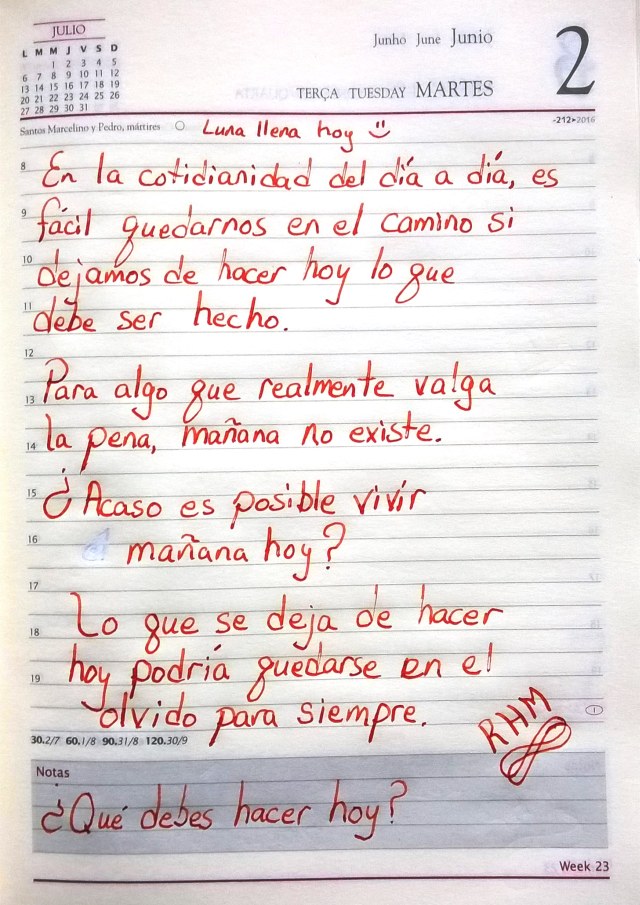 JULIO
L M M J V S D
1 2 3 4 5
6 7 8 9 10 11 12
13 14 15 16 17 18 19
20 21 22 23 24 25 26
27 28 29 30 31
Junho June Junio
2
TERÇA TUESDAY MARTES
-212▸2016
Santos Marcelino y Pedro, mártires
Luna llena hoy
8 En la cotidianidad del día a día, es
9 fácil quedarnos en el camino si
10 dejamos de hacer hoy lo que
11 debe ser hecho.
12
13 Para algo que realmente valga
14 la pena, mañana no existe.
15 ¿Acaso es posible vivír
16 mañana hoy?
17
18 Lo que se deja de hacer
19 hoy podría quedarse en el
olvido para siempre.
RHM
30.2/7 60.1/8 90.31/8 120.30/9
Notas
¿Qué debes hacer hoy?
Week 23